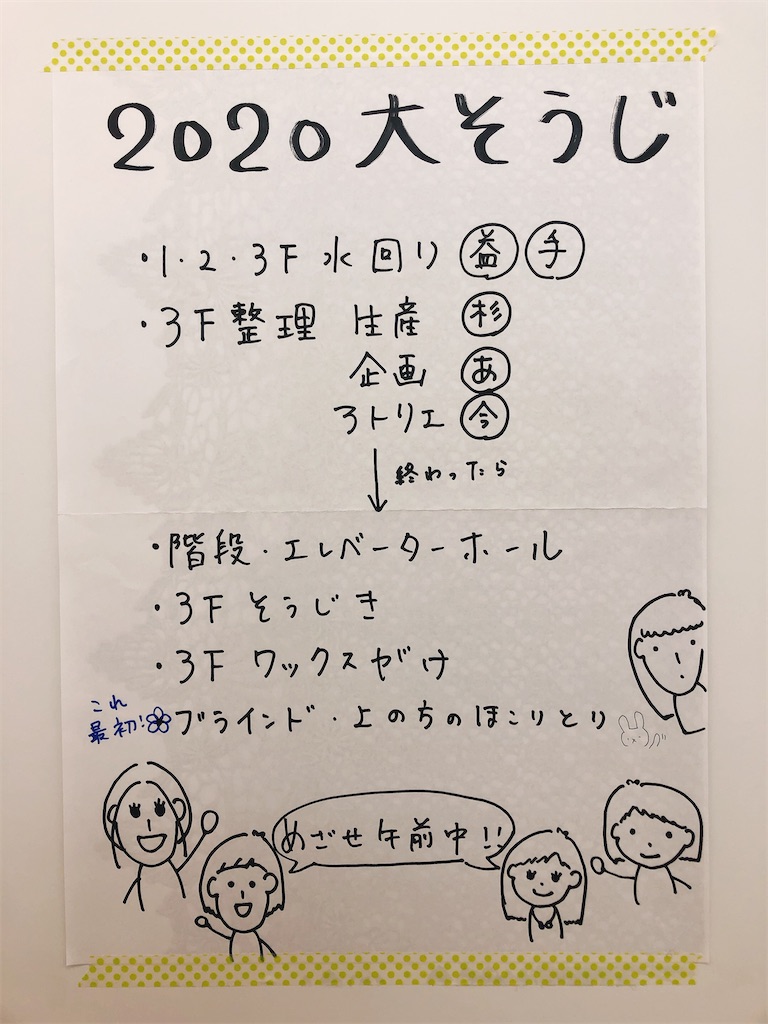 2020大そうじ
・1・2・3F 水回り 益 手
・3F整理 生産 杉
企画 あ
アトリエ 今
↓ 終わったら
・階段・エレベーターホール
・3F そうじき
・3F ワックスがけ
これ
最初! ブラインド・上の方のほこりとり
めざせ午前中!!